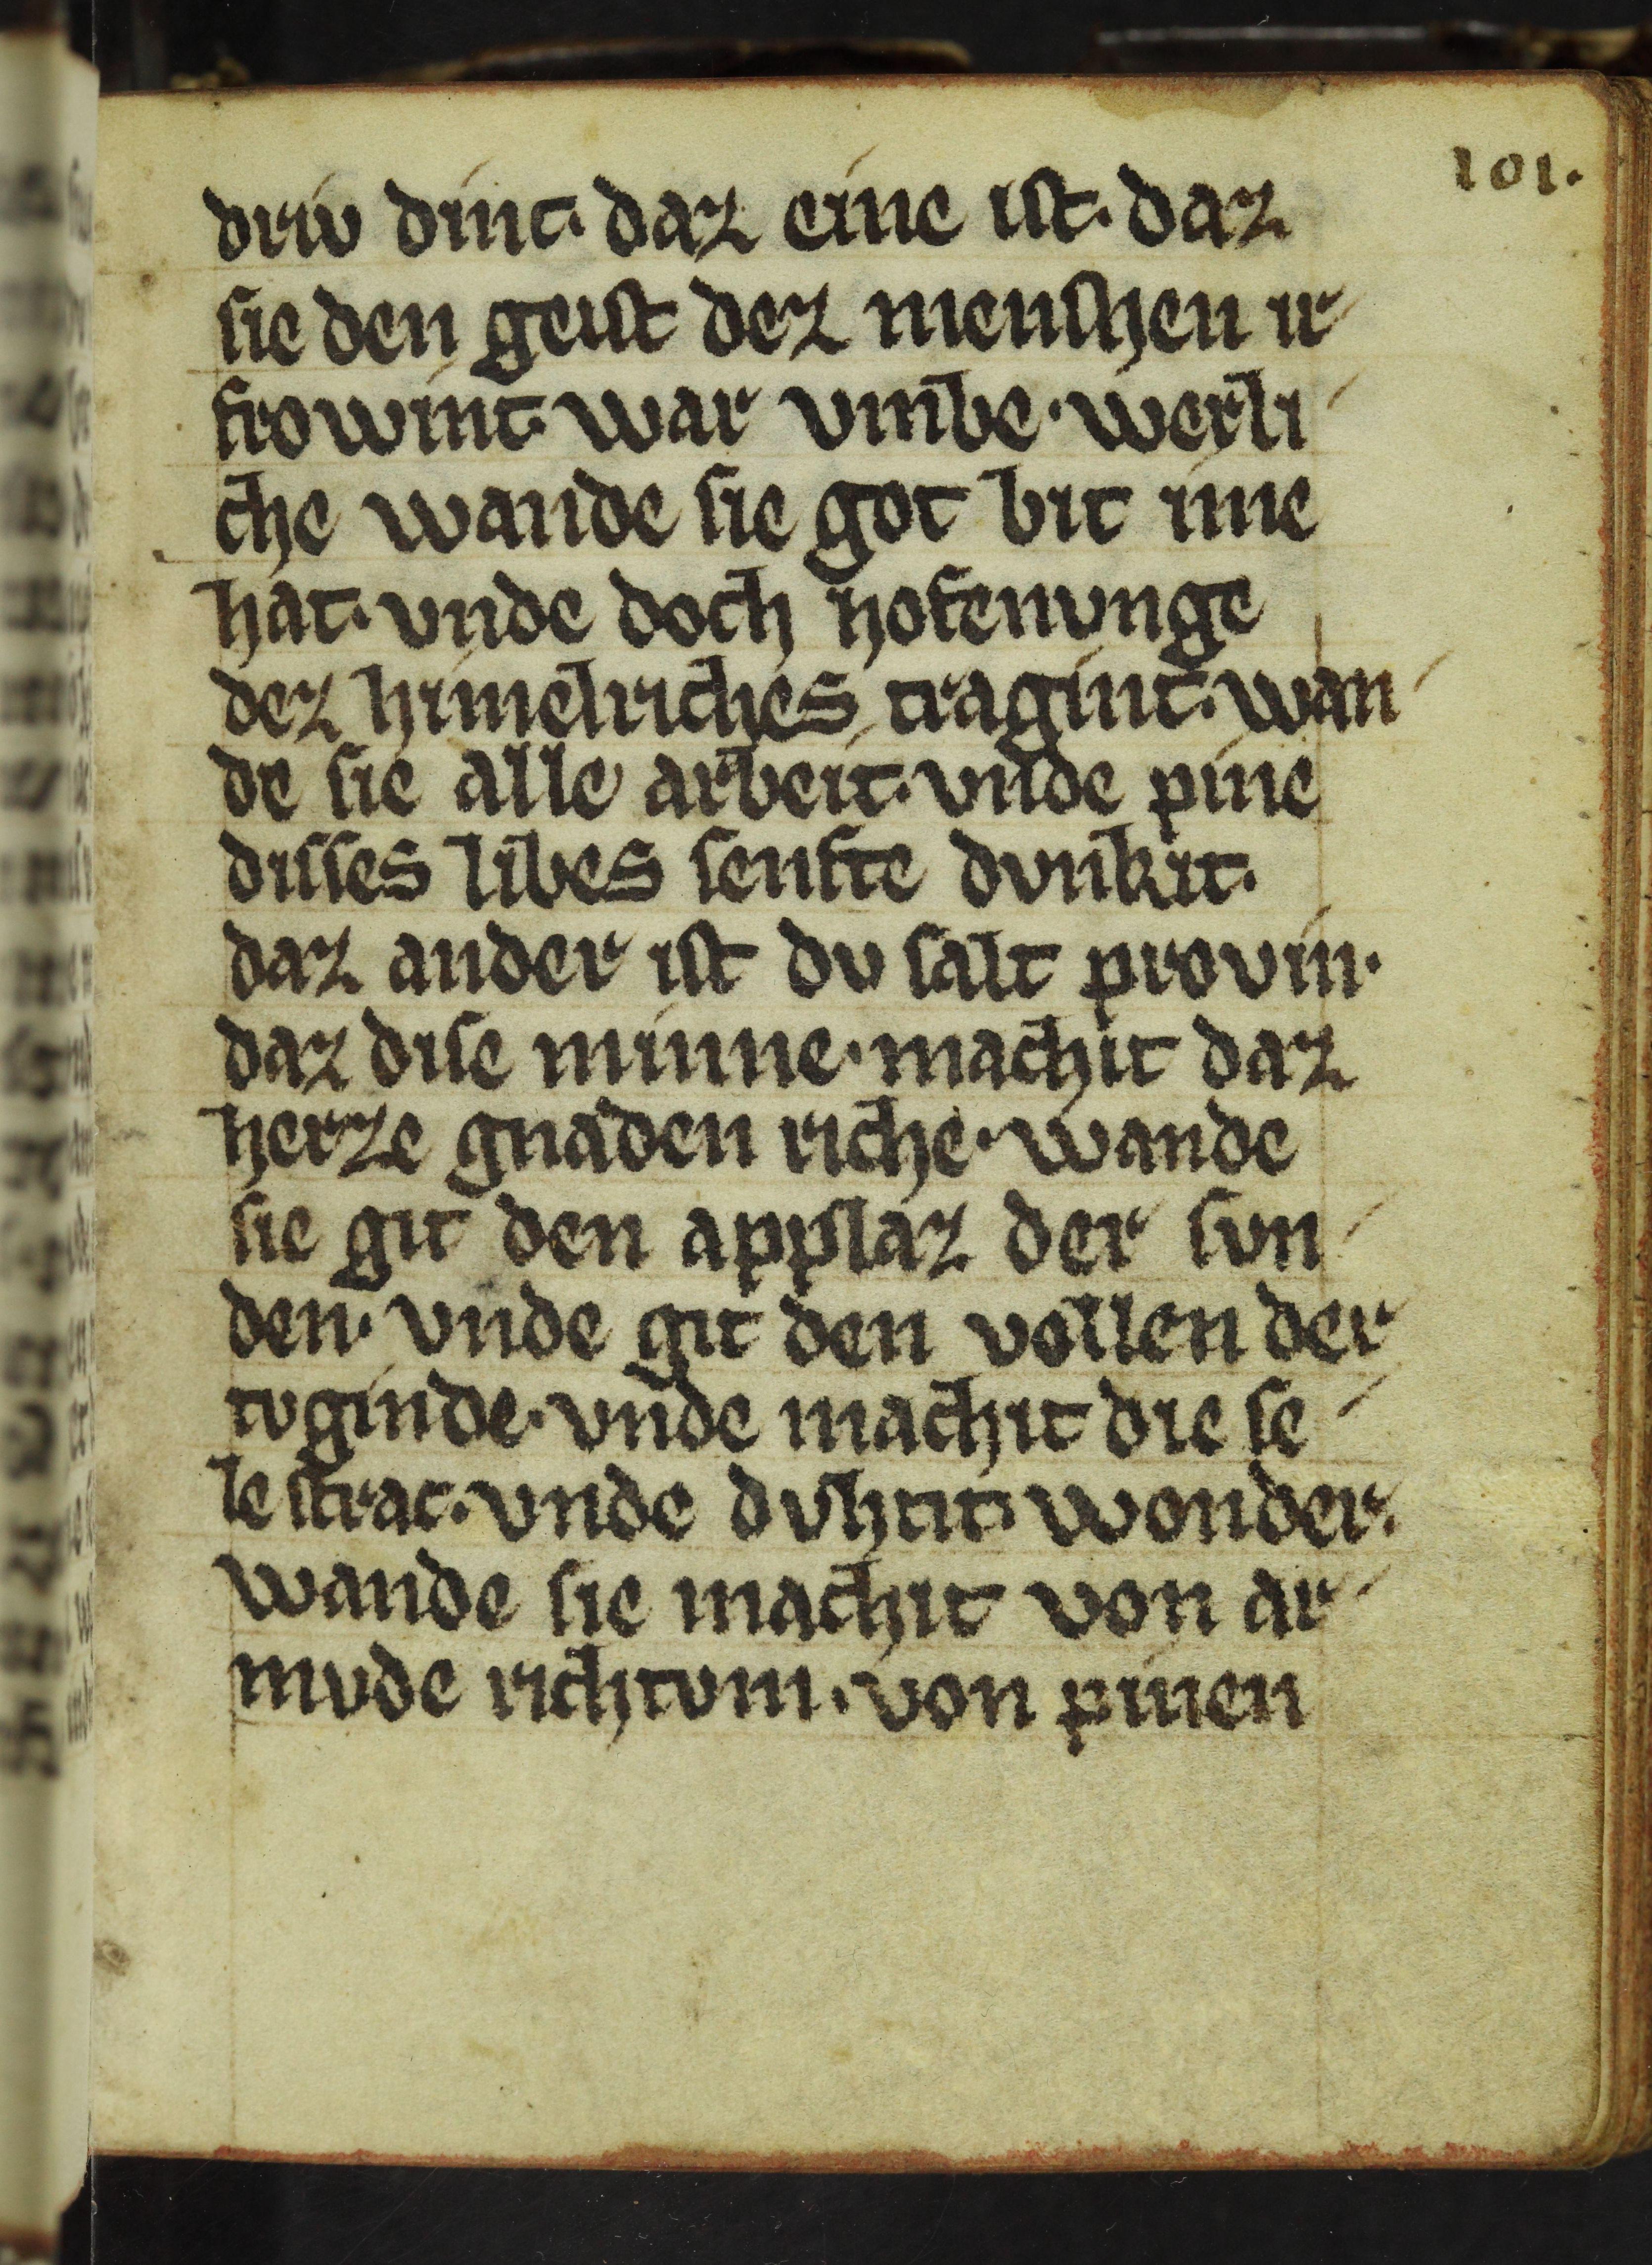 101.
driv dinc. daz eine ist. daz
sie den geist dez menschen ir
frowint. war vmbe. werli
che wande sie got bit ime
hat. vnde doch hofenvnge
dez himelriches tragint. wan
de sie alle arbeit. vnde pine
disses libes senfte dvnkit.
daz ander ist dv salt provin.
daz dise minne. machit daz
herze gnaden riche. wande
sie git den applaz der svn
den. vnde git den vollen der
tvginde. vnde machit die se
le strac. vnde dvhtit. wonder.
wande sie machit von ar
mvde richtvm. von pinen